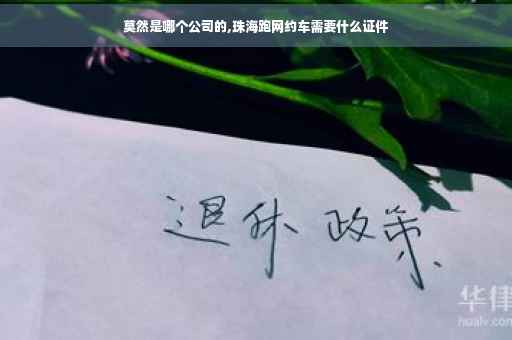 莫然是哪个公司的,珠海跑网约车需要什么证件
退休 政策
华律
hualv.com